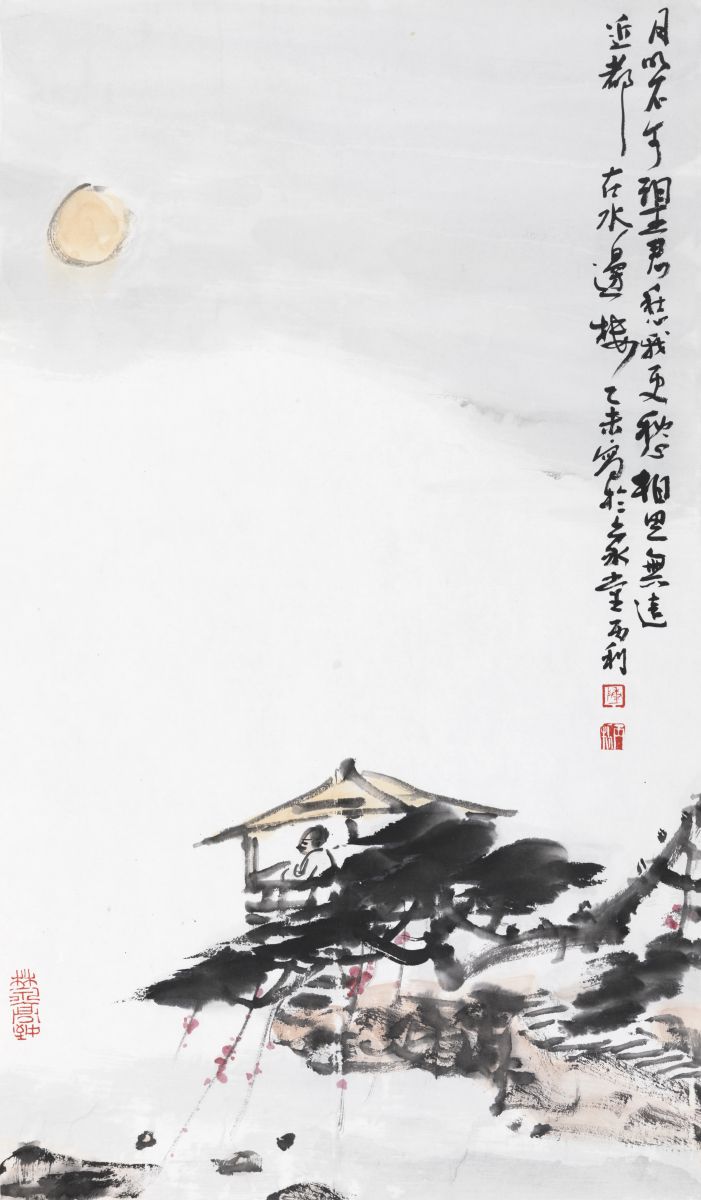 月明不可望君愁我更愁相思無遠
近都在水邊樓 乙未寫於堂西利